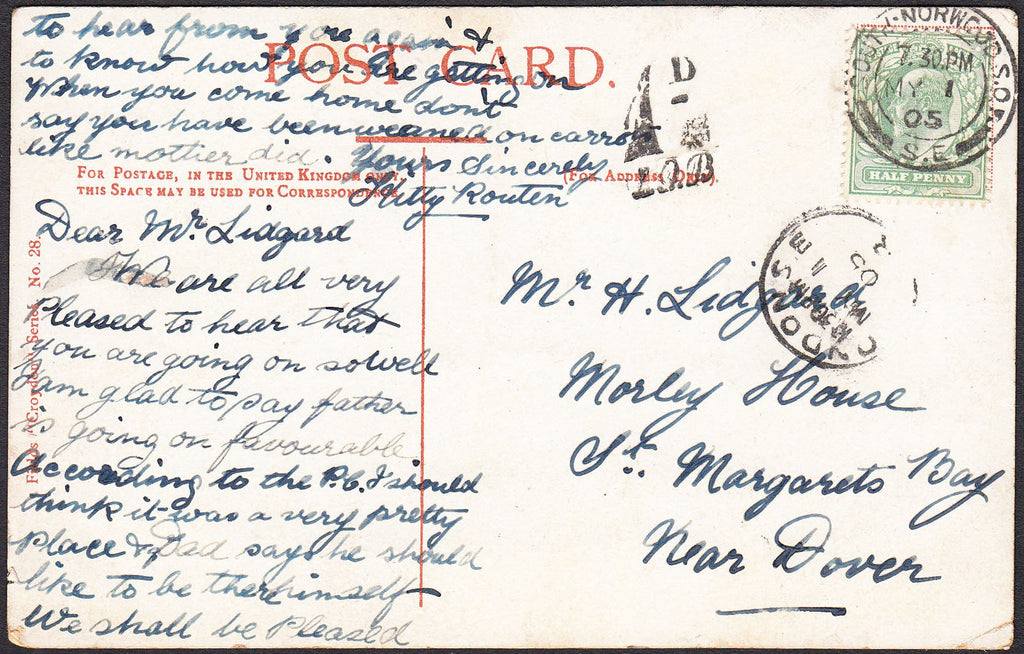 to hear from you again &
to know how you are getting on
When you come home don't
say you have been weaned on carrots
like mother did. Yours Sincerely
Kitty Routen
POST CARD.
FOR POSTAGE, IN THE UNITED KINGDOM ONLY,
THIS SPACE MAY BE USED FOR CORRESPONDENCE.
(FOR ADDRESS ONLY.)
Dear Mr Lidgard
We are all very
Pleased to hear that
you are going on so well
I am glad to say father
is going on favourable
According to the P.C. I should
think it was a very pretty
Place & Dad says he should
like to be there himself
We shall be Pleased
Croydon Series. No. 28.
1D
L.S.D
NORWOOD S.O.
7.30 PM
MY 1
05
S.E
HALF PENNY
LONDON S E
Mr H. Lidgard
Morley House
St. Margarets Bay
Near Dover